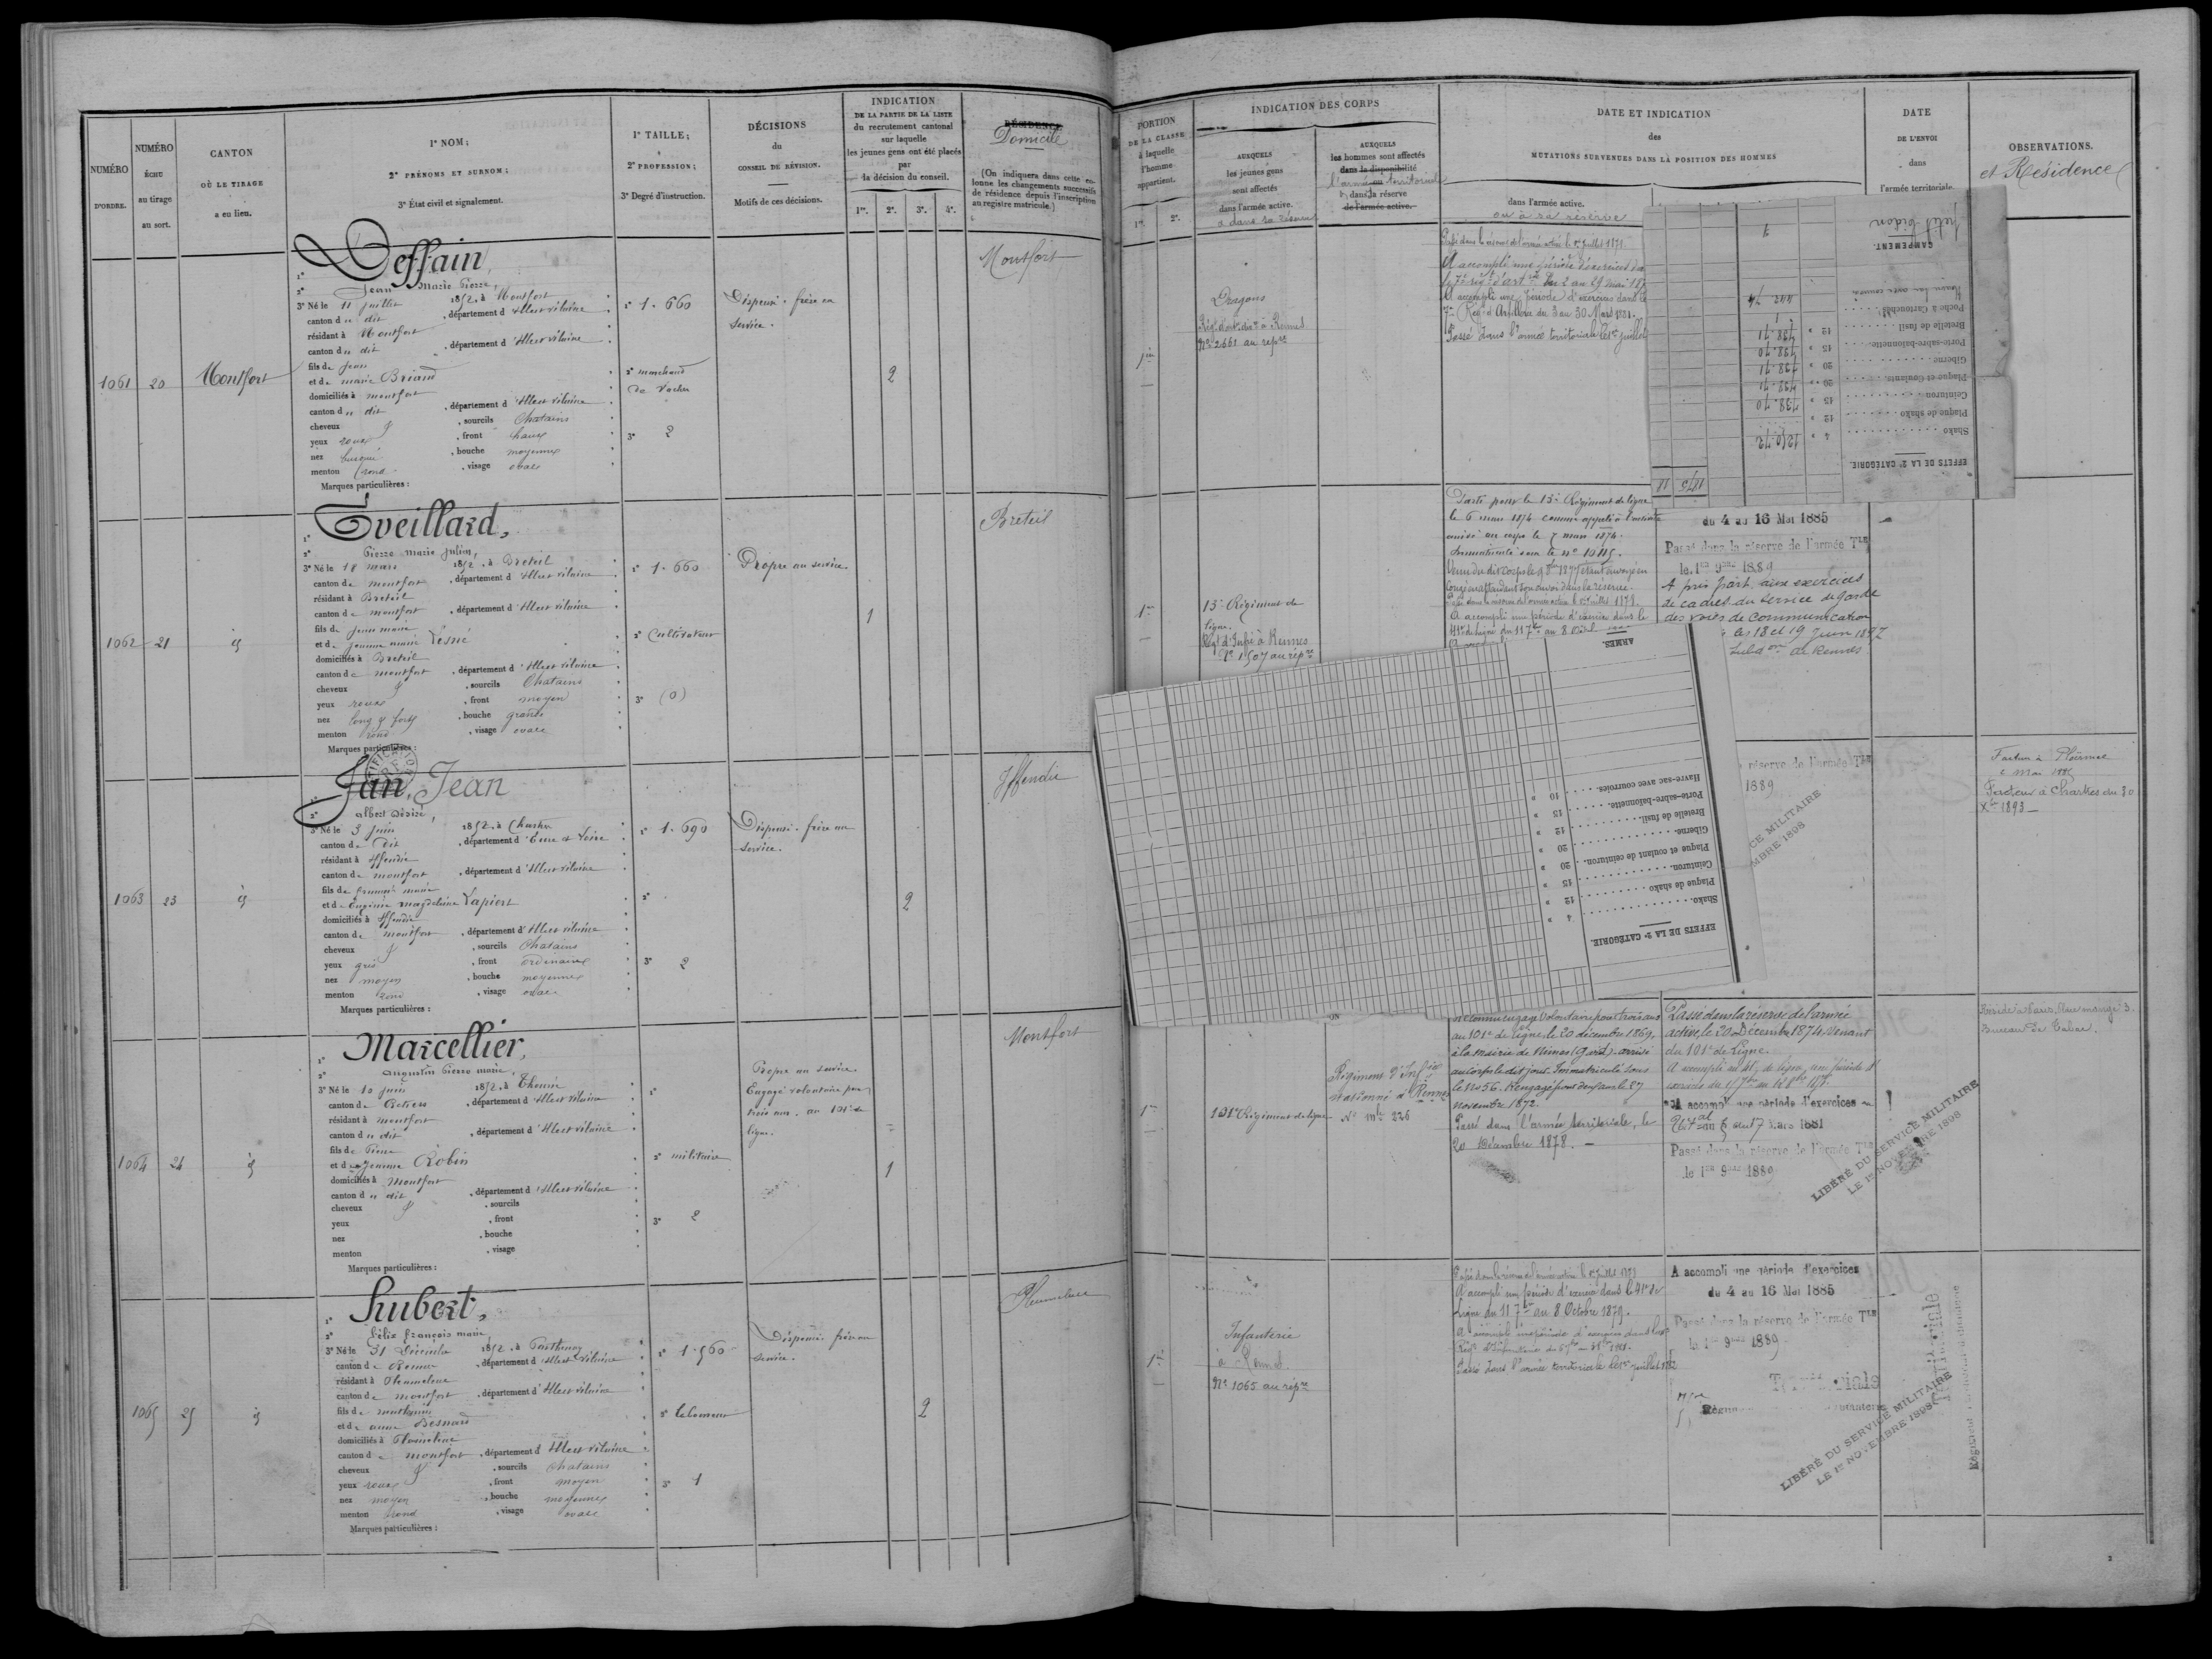 NUMÉRO
D'ORDRE.
NUMÉRO
ÉCHU
au tirage
au sort.
CANTON
OÙ LE TIRAGE
a eu lieu.
1° NOM;
2° PRÉNOMS ET SURNOM;
3° État civil et signalement.
1° TAILLE;
2° PROFESSION;
3° Degré d'instruction.
DÉCISIONS
du
CONSEIL DE RÉVISION.
Motifs de ces décisions.
INDICATION
DE LA PARTIE DE LA LISTE
du recrutement cantonal
sur laquelle
les jeunes gens ont été placés
par
la décision du conseil.
1re. 2e. 3e. 4e.
RÉSIDENCE
Domicile
(On indiquera dans cette co-
lonne les changements successifs
de résidence depuis l'inscription
au registre matricule.)
1061
20
Montfort
1° Deffain,
2° Jean Marie Pierre,
3° Né le 11 juillet 1852, à Montfort
canton du dit, département d'Ille et vilaine
résidant à Montfort
canton du dit, département d'Ille et vilaine
fils de Jean
et de marie Briand
domiciliés à montfort
canton du dit, département d'Ille et vilaine
cheveux &, sourcils Chatains
yeux roux, front haut
nez busqué, bouche moyenne
menton rond, visage ovale
Marques particulières :
1° 1.660
2° marchand
de vaches
3° 2
Dispensé. frère au
service.
2
Montfort
1062
21
id
1° Eveillard,
2° Pierre marie Julien,
3° Né le 18 mars 1852, à Breteil
canton de montfort, département d'Ille et vilaine
résidant à Breteil
canton de montfort, département d'Ille et vilaine
fils de Jean marie
et de Jeanne marie Lesné
domiciliés à Breteil
canton de montfort, département d'Ille et vilaine
cheveux &, sourcils Chatains
yeux roux, front moyen
nez long & fort, bouche grande
menton rond, visage ovale
Marques particulières :
1° 1.660
2° Cultivateur
3° (0)
Propre au service.
1
Breteil
1063
23
id
1° Jan, Jean
2° albert Désiré,
3° Né le 3 juin 1852, à Chartres
canton de dit, département d'Eure et Loire
résidant à Iffendic
canton de montfort, département d'Ille et vilaine
fils de françois marie
et de Eugénie magdeleine Lapiert
domiciliés à Iffendic
canton de montfort, département d'Ille et vilaine
cheveux &, sourcils Chatains
yeux gris, front ordinaire
nez moyen, bouche moyenne
menton rond, visage ovale
Marques particulières :
1° 1.690
2°
3° 2
Dispensé. frère au
service.
2
Iffendic
1064
24
id
1° Marcellier,
2° augustin Pierre marie,
3° Né le 10 juin 1852, à Thourie
canton de Retiers, département d'Ille et vilaine
résidant à montfort
canton du dit, département d'Ille et vilaine
fils de Pierre
et de Jeanne Robin
domiciliés à Montfort
canton du dit, département d'Ille et vilaine
cheveux &, sourcils
yeux, front
nez, bouche
menton, visage
Marques particulières :
1°
2° militaire
3° 2
Propre au service.
Engagé volontaire pour
trois ans, au 101e de
ligne.
1
Montfort
1065
25
id
1° Hubert,
2° félix françois marie,
3° Né le 31 Décembre 1852, à Parthenay
canton de Rennes, département d'Ille et Vilaine
résidant à Pleumeleuc
canton de montfort, département d'Ille et vilaine
fils de
et de anne Besnard
domiciliés à Pleumeleuc
canton de montfort, département d'Ille et vilaine
cheveux &, sourcils Chatains
yeux roux, front moyen
nez moyen, bouche moyenne
menton rond, visage ovale
Marques particulières :
1° 1.560
2° laboureur
3° 1
Dispensé frère au
service.
2
Pleumeleuc
PORTION
DE LA CLASSE
à laquelle
l'homme
appartient.
1re. 2e.
INDICATION DES CORPS
AUXQUELS
les jeunes gens
sont affectés
dans l'armée active.
ou dans sa réserve
AUXQUELS
les hommes sont affectés
dans la disponibilité
l'armée ou territoriale
& dans la réserve
de l'armée active.
DATE ET INDICATION
des
MUTATIONS SURVENUES DANS LA POSITION DES HOMMES
dans l'armée active.
ou à sa réserve
DATE
DE L'ENVOI
dans
l'armée territoriale.
OBSERVATIONS.
et Résidence
1re
Dragons
Régt d'art. à Rennes
No 2661 au repre
Passé dans la réserve de l'armée active le 1er Juillet 1878.
A accompli une période d'exercices dans
le 7e régt d'artrie du 2 au 29 mars 187
A accompli une période d'exercices dans le
7e Régt d'Artillerie du 3 au 30 Mars 1881.
Passé dans l'armée territoriale le 1er juillet
CAMPEMENT.
petit bidon
1
Poche à Cartouches
442 74
Bretelle de fusil
1
Porte-sabre-baïonnette
12 » 738.71
Giberne
15 » 738.70
Plaque et Coulants
20 » 738.71
Ceinturon
20 » 738.71
Plaque de shako
15 » 738.70
Shako
12 »
4 » 1250.72
EFFETS DE LA 2e CATÉGORIE.
1875 18
1re
15e Régiment de
ligne.
Régt d'Infie à Rennes
No 1507 au repre
Parti pour le 15e Régiment de ligne
le 6 mars 1874 comme appelé à l'activité
arrivé au corps le 7 mars 1874.
Immatriculé sous le no 10115.
Congé en attendant son envoi dans la réserve.
Passé dans la réserve de l'armée active le 1er juillet 1878.
A accompli une période d'exercices dans le
41e de ligne du 11 7bre au 8
du 4 au 16 Mai 1885
Passé dans la réserve de l'armée Tle
le 1er 9bre 1889
A pris part aux exercices
de cadres du service de garde
des voies de communication
les 18 et 19 Juin 1897
Subdon de Rennes
ARMES.
Havre-sac avec courroies. 10 »
Porte-sabre-baïonnette. 15 »
Bretelle de fusil. 12 »
Giberne. 20 »
Plaque et coulant de ceinturon. 20 »
Ceinturon. 15 »
Plaque de shako 12 »
Shako. 4 »
EFFETS DE LA 2e CATÉGORIE.
réserve de l'armée Tle
1889
CE MILITAIRE
MBRE 1898
Facteur à Ploërmel
Facteur à Chartres du 30
Xbre 1893 —
1re
101e Régiment de ligne
Régiment d'Infie
stationné à Rennes
No mle 226
volontaire pour trois ans
au 101e de ligne, le 20 décembre 1869,
à la mairie de Nîmes (Gard). arrivé
au corps le dit jour. Immatriculé sous
le No 56. Rengagé pour deux ans le 27
novembre 1872.
Passé dans l'armée territoriale, le
20 Décembre 1878. —
Passé dans la réserve de l'armée
active, le 20 Décembre 1874, venant
du 101e de Ligne.
A accompli au 41e de ligne, une période d'
A accompli une période d'exercices
au 17 Mars 1881
Passé dans la réserve de l'armée Tle
le 1er 9bre 1889
LIBÉRÉ DU SERVICE MILITAIRE
LE 1er NOVEMBRE 1898
Réside à Paris, Rue monge 3.
Bureau de Tabac.
1re
Infanterie
à Rennes
No 1065 au repre
Passé dans la réserve de l'armée active le 1er Juillet 1878
A accompli une période d'exercice dans le 41e de
Ligne du 11 7bre au 8 Octobre 1879.
A accompli une période d'exercices dans le
Passé dans l'armée territoriale le 1er juillet 1882
A accompli une période d'exercices
du 4 au 16 Mai 1885
Passé dans la réserve de l'armée Tle
le 1er 9bre 1889
Territoriale
LIBÉRÉ DU SERVICE MILITAIRE
LE 1er NOVEMBRE 1898
Territoriale